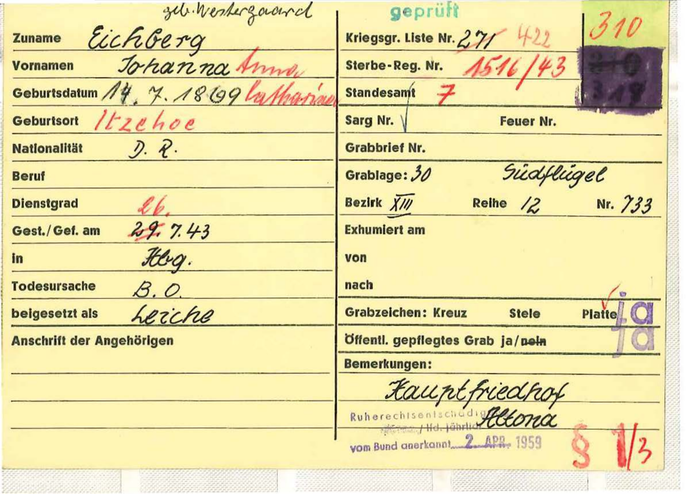 geb. Westergaard
Zuname Eichberg
Vornamen Johanna Anna
Geburtsdatum 14. 7. 1869 Catharina
Geburtsort Itzehoe
Nationalität D. R.
Beruf
Dienstgrad
26.
Gest./Gef. am 29. 7.43
in Hbg.
Todesursache B. O.
beigesetzt als Leiche
Anschrift der Angehörigen
geprüft
310
Kriegsgr. Liste Nr. 271 422
Sterbe-Reg. Nr. 1516/43
Standesamt 7
Sarg Nr. Feuer Nr.
Grabbrief Nr.
Grablage: 30 Südflügel
Bezirk XIII Reihe 12 Nr. 733
Exhumiert am
von
nach
Grabzeichen: Kreuz Stele Platte ja
Öffentl. gepflegtes Grab ja/nein ja
Bemerkungen:
Hauptfriedhof
Altona
Ruherechtsentschädig
/ lfd. jährlich
vom Bund anerkannt 2. APR. 1959
§ 1/3